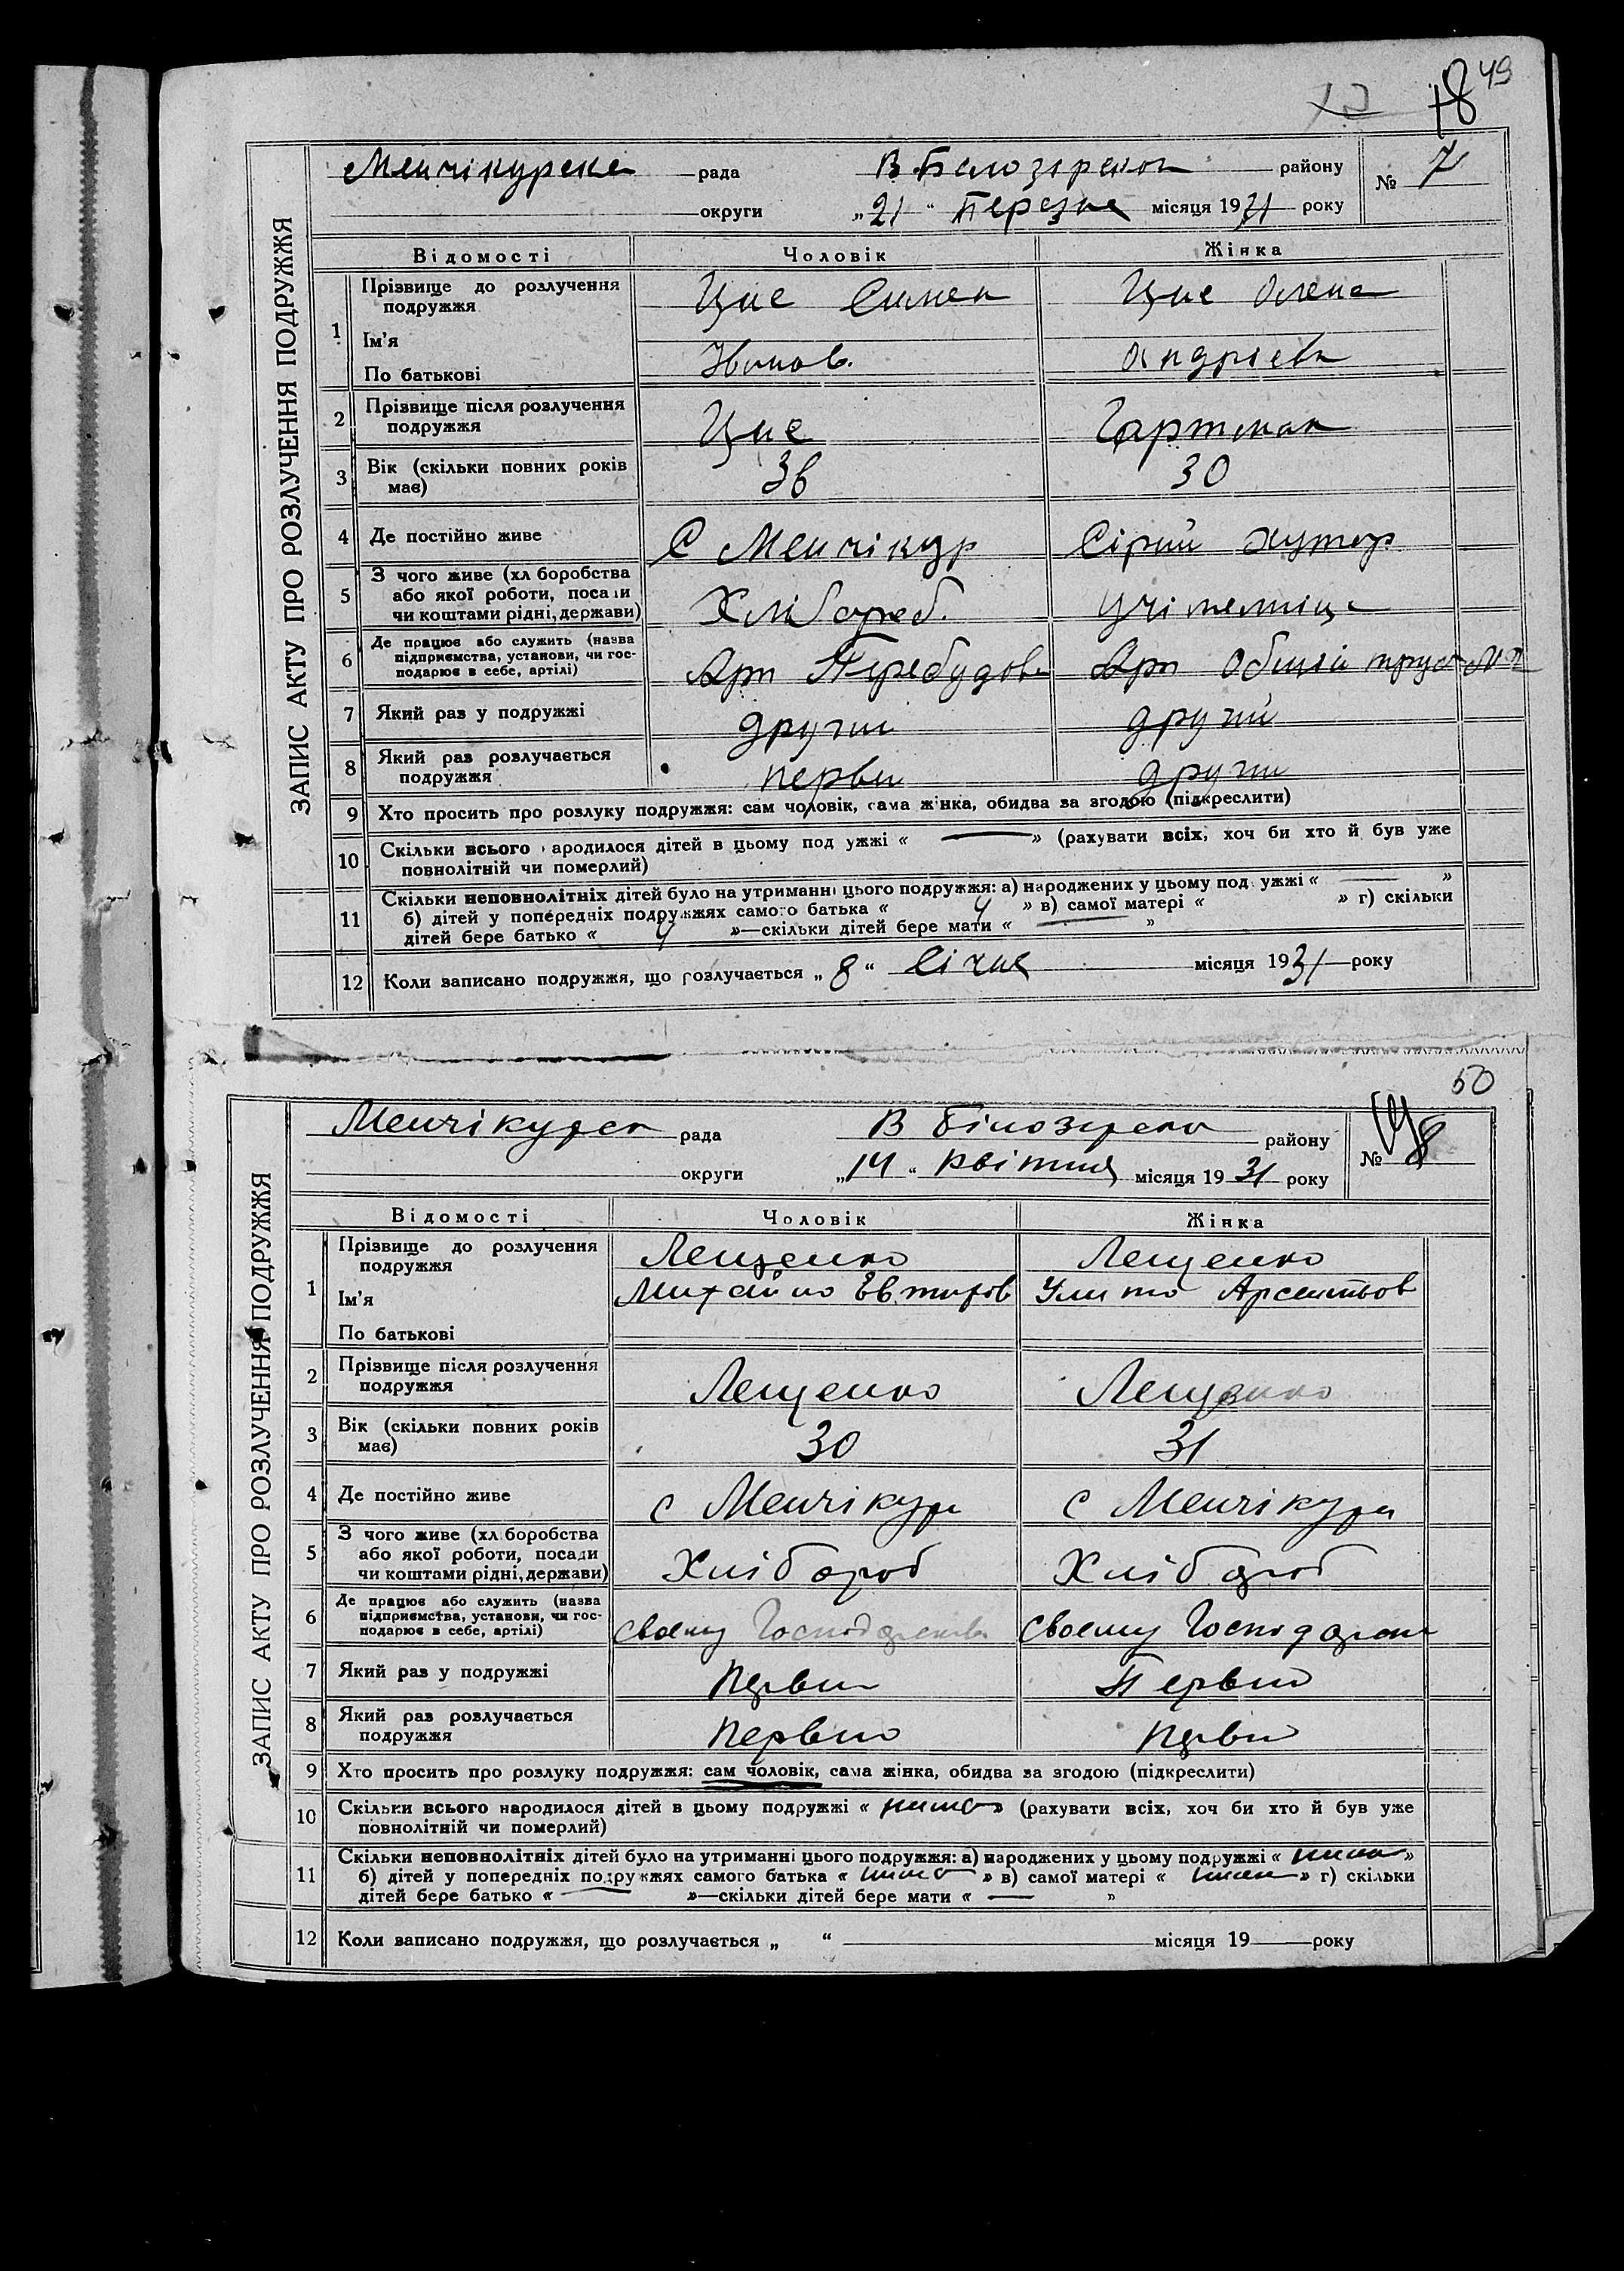 49
18
Менчікурска рада В Білозірськ району № 7
округи „21“ Березня місяця 1931 року
ЗАПИС АКТУ ПРО РОЗЛУЧЕННЯ ПОДРУЖЖЯ
Відомості Чоловік Жінка
1 Прізвище до розлучення подружжя Цис Семен Цис Олена
Ім'я
По батькові Іванов. Андріевн
2 Прізвище після розлучення подружжя Цис Гартман
3 Вік (скільки повних років має) 36 30
4 Де постійно живе С Менчікур Сірий хутор
5 З чого живе (хліборобства або якої роботи, посади чи коштами рідні, держави) Хлібороб. Учітельниця
6 Де працює або служить (назва підприємства, установи, чи господарює в себе, артілі) Арт Перебудова Арт Общій труд
7 Який раз у подружжі други другий
8 Який раз розлучається подружжя перви други
9 Хто просить про розлуку подружжя: сам чоловік, сама жінка, обидва за згодою (підкреслити)
10 Скільки всього народилося дітей в цьому подружжі « — » (рахувати всіх, хоч би хто й був уже
повнолітній чи померлий)
11 Скільки неповнолітніх дітей було на утриманні цього подружжя: а) народжених у цьому подружжі « — »
б) дітей у попередніх подружжях самого батька « 4 » в) самої матері « » г) скільки
дітей бере батько « 4 »—скільки дітей бере мати « — »
12 Коли записано подружжя, що розлучається „ 8 “ Січня місяця 1931 року
50
Менчікурск рада В Білозірськ району № 8
округи „14“ квітня місяця 1931 року
ЗАПИС АКТУ ПРО РОЗЛУЧЕННЯ ПОДРУЖЖЯ
Відомості Чоловік Жінка
1 Прізвище до розлучення подружжя Лещенко Лещенко
Ім'я Михайло Евтифов Улита Арсентьов
По батькові
2 Прізвище після розлучення подружжя Лещенко Лещенко
3 Вік (скільки повних років має) 30 31
4 Де постійно живе с Менчікури с Менчікури
5 З чого живе (хліборобства або якої роботи, посади чи коштами рідні, держави) Хлібороб Хлібороб
6 Де працює або служить (назва підприємства, установи, чи господарює в себе, артілі) Своему Господарстві Своему Господарст
7 Який раз у подружжі Перви Первий
8 Який раз розлучається подружжя Первий Перви
9 Хто просить про розлуку подружжя: сам чоловік, сама жінка, обидва за згодою (підкреслити)
10 Скільки всього народилося дітей в цьому подружжі « нима » (рахувати всіх, хоч би хто й був уже
повнолітній чи померлий)
11 Скільки неповнолітніх дітей було на утриманні цього подружжя: а) народжених у цьому подружжі « нима »
б) дітей у попередніх подружжях самого батька « нима » в) самої матері « нима » г) скільки
дітей бере батько « — »—скільки дітей бере мати « — »
12 Коли записано подружжя, що розлучається „ “ місяця 19 року